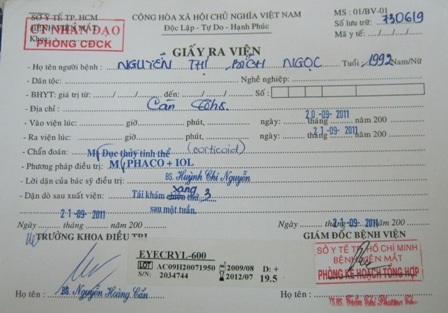 SỞ Y TẾ TP. HCM CỘNG HÒA XÃ HỘI CHỦ NGHĨA VIỆT NAM MS : 01/BV-01
BỆNH VIỆN MẮT Độc Lập - Tự Do - Hạnh Phúc Số lưu trữ: 730619
CT NHÂN ĐẠO
PHÒNG CĐCK
Khoa Mã y tế: ..../..../....
GIẤY RA VIỆN
- Họ tên người bệnh : NGUYỄN THỊ BÍCH NGỌC Tuổi 1992 Nam/Nữ
- Dân tộc: Nghề nghiệp:
- BHYT: giá trị từ: ..../..../.... đến: ..../..../.... Số :
- Địa chỉ : Cần Thơ.
- Vào viện lúc: giờ phút, ngày: 20-09-2011 tháng năm 200
- Ra viện lúc: giờ phút, ngày: 21-09-2011 tháng năm 200
- Chẩn đoán: MP Đục thủy tinh thể (corticoid)
- Phương pháp điều trị: MP PHACO + IOL
- Lời dặn của bác sỹ điều trị: BS. Huỳnh Chí Nguyễn
- Dặn dò sau xuất viện: Tái khám sáng thứ 3
sau một tuần.
Ngày 21-09-2011 tháng năm 200 Ngày 21-09-2011 tháng năm 200
TRƯỞNG KHOA ĐIỀU TRỊ GIÁM ĐỐC BỆNH VIỆN
SỞ Y TẾ TP. HỒ CHÍ MINH
BỆNH VIỆN MẮT
PHÒNG KẾ HOẠCH TỔNG HỢP
EYECRYL-600
LOT AC09H20071950 2009/08 D: +
S/N: 2034744 2012/07 19.5
Họ tên : BS. Nguyễn Hoàng Cẩn Họ tên :